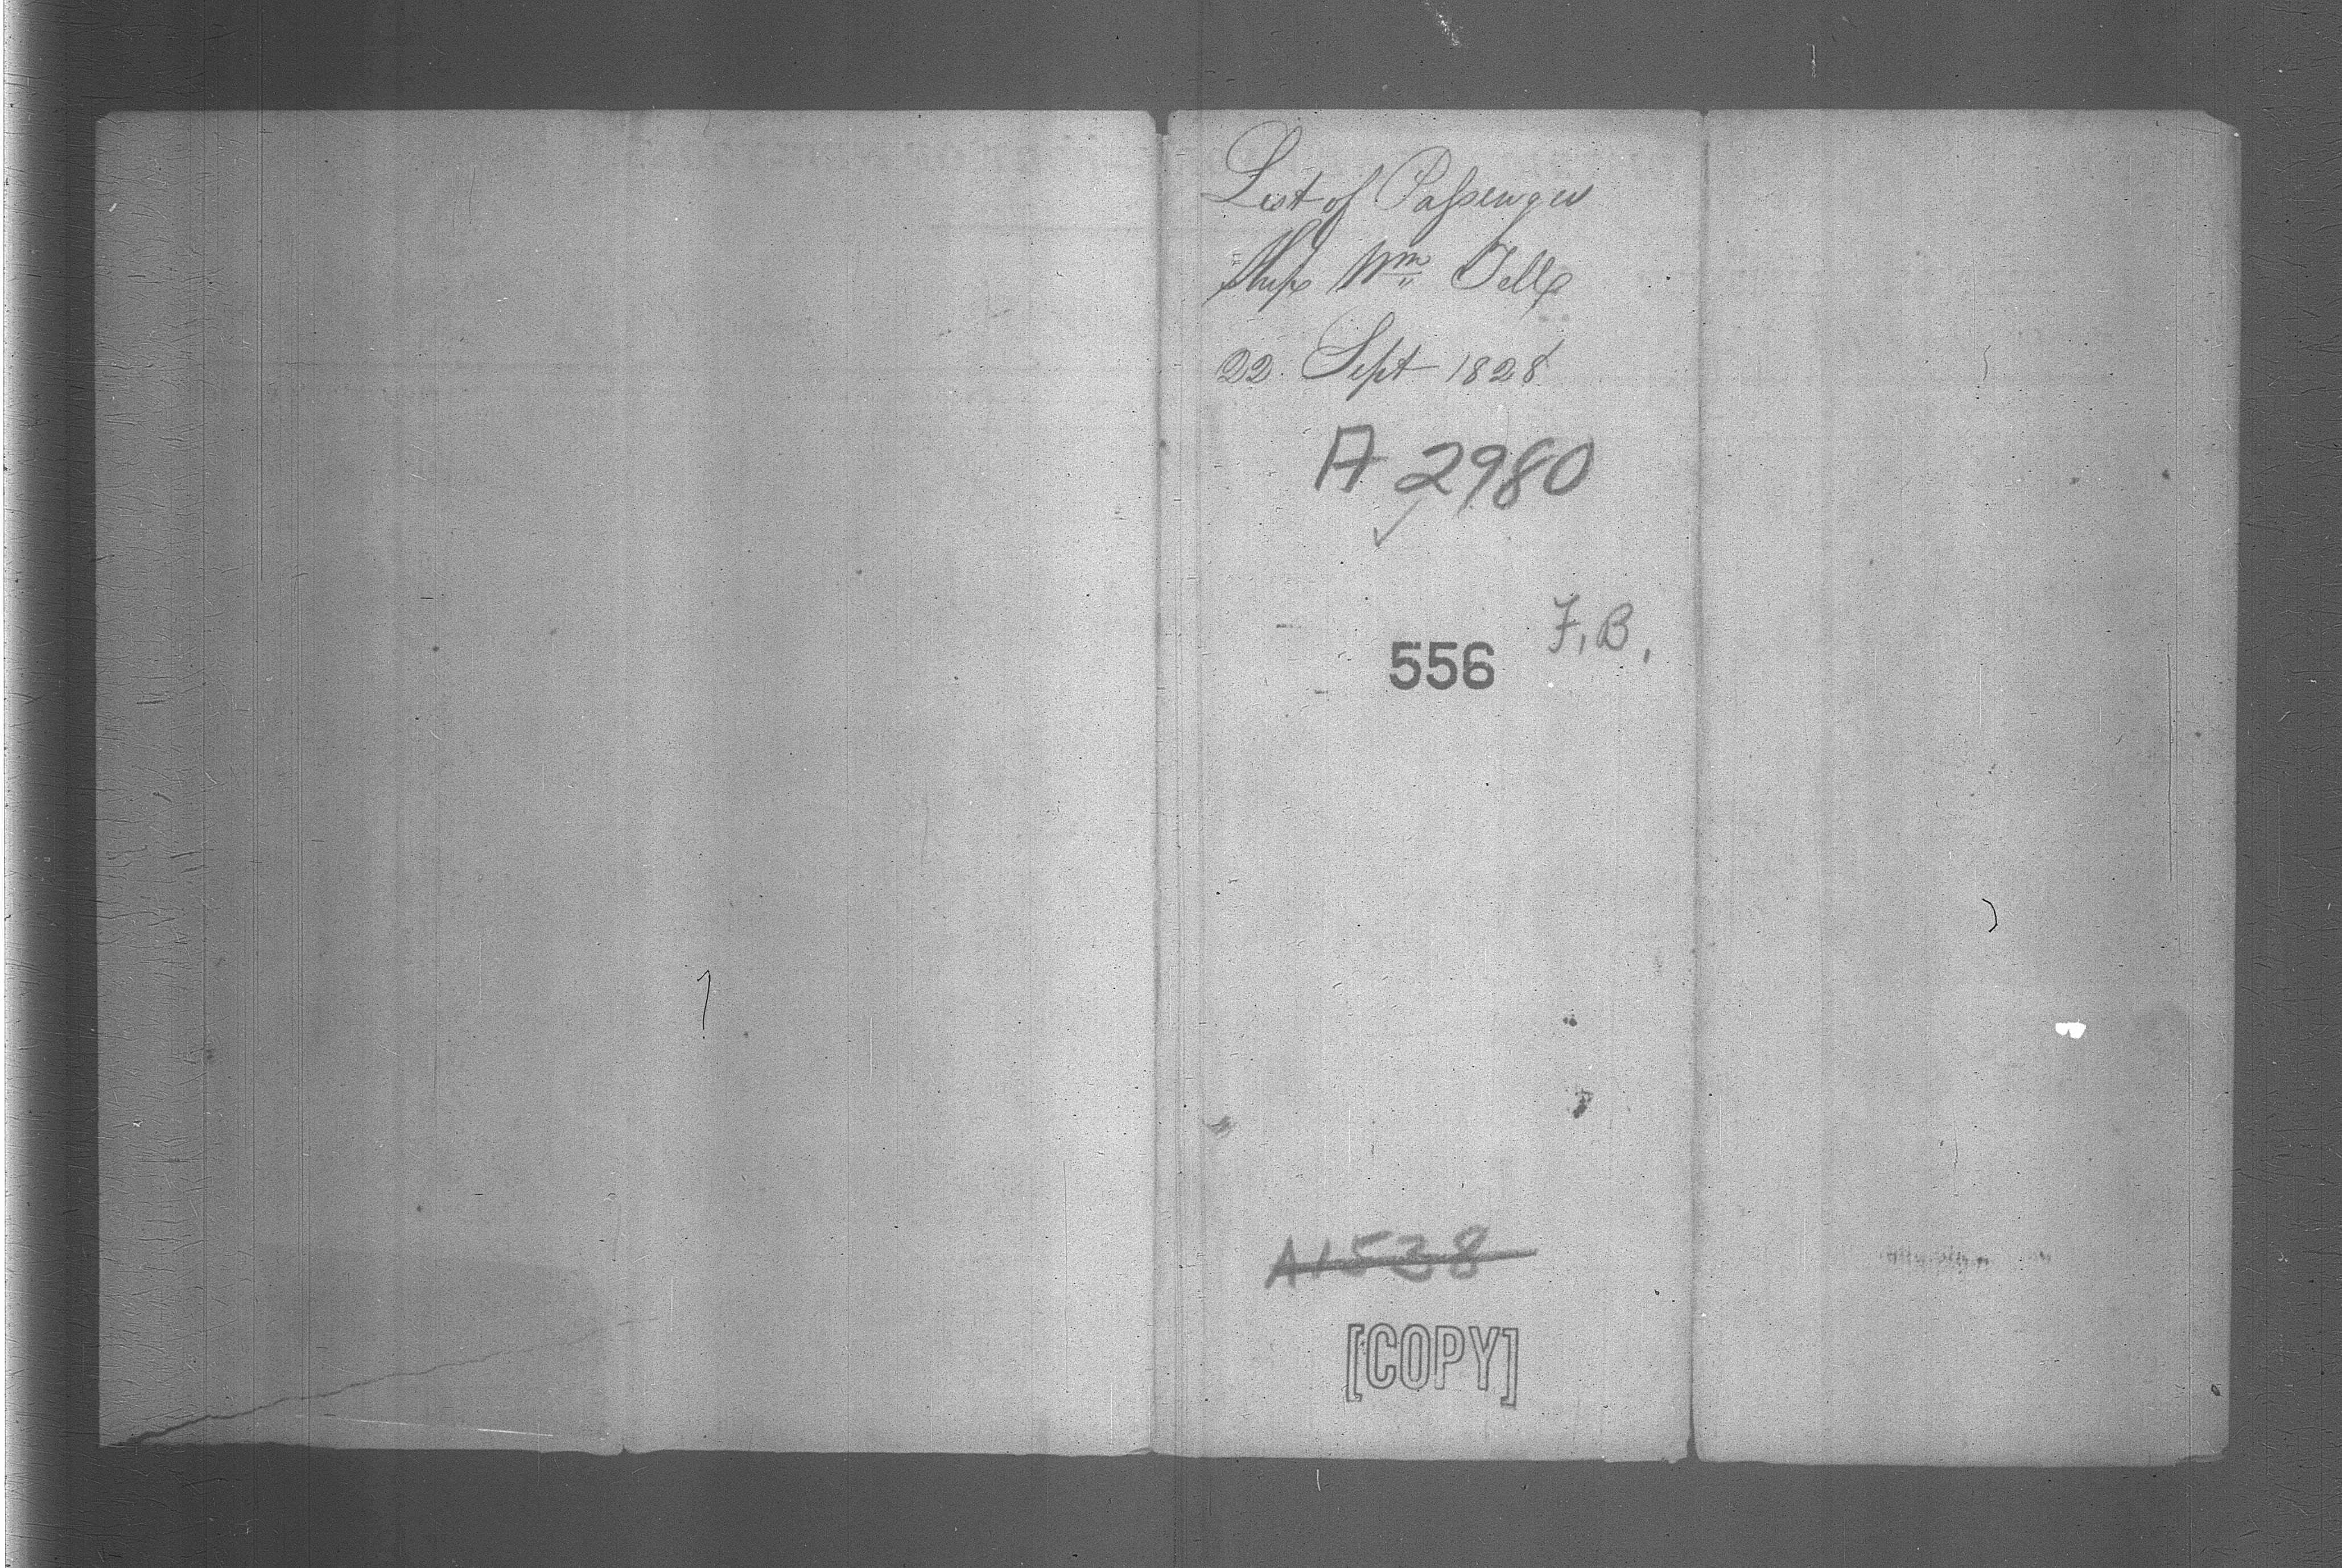 List of Passengers
Ship Wm Tell
22 Sept 1828
A 2980
F.B.
556
A1538
[COPY]